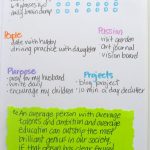 daily brain dump
People
date with hubby
driving practice with daughter
Passion
visit garden
art journal
vision board
Purpose
pray for my husband
write daily
encourage my children
Projects
blog project
10 min a day declutter
An average person with average
talents and ambition and average
education can outstrip the most
brilliant genius in our society,
if that person has clear, focused